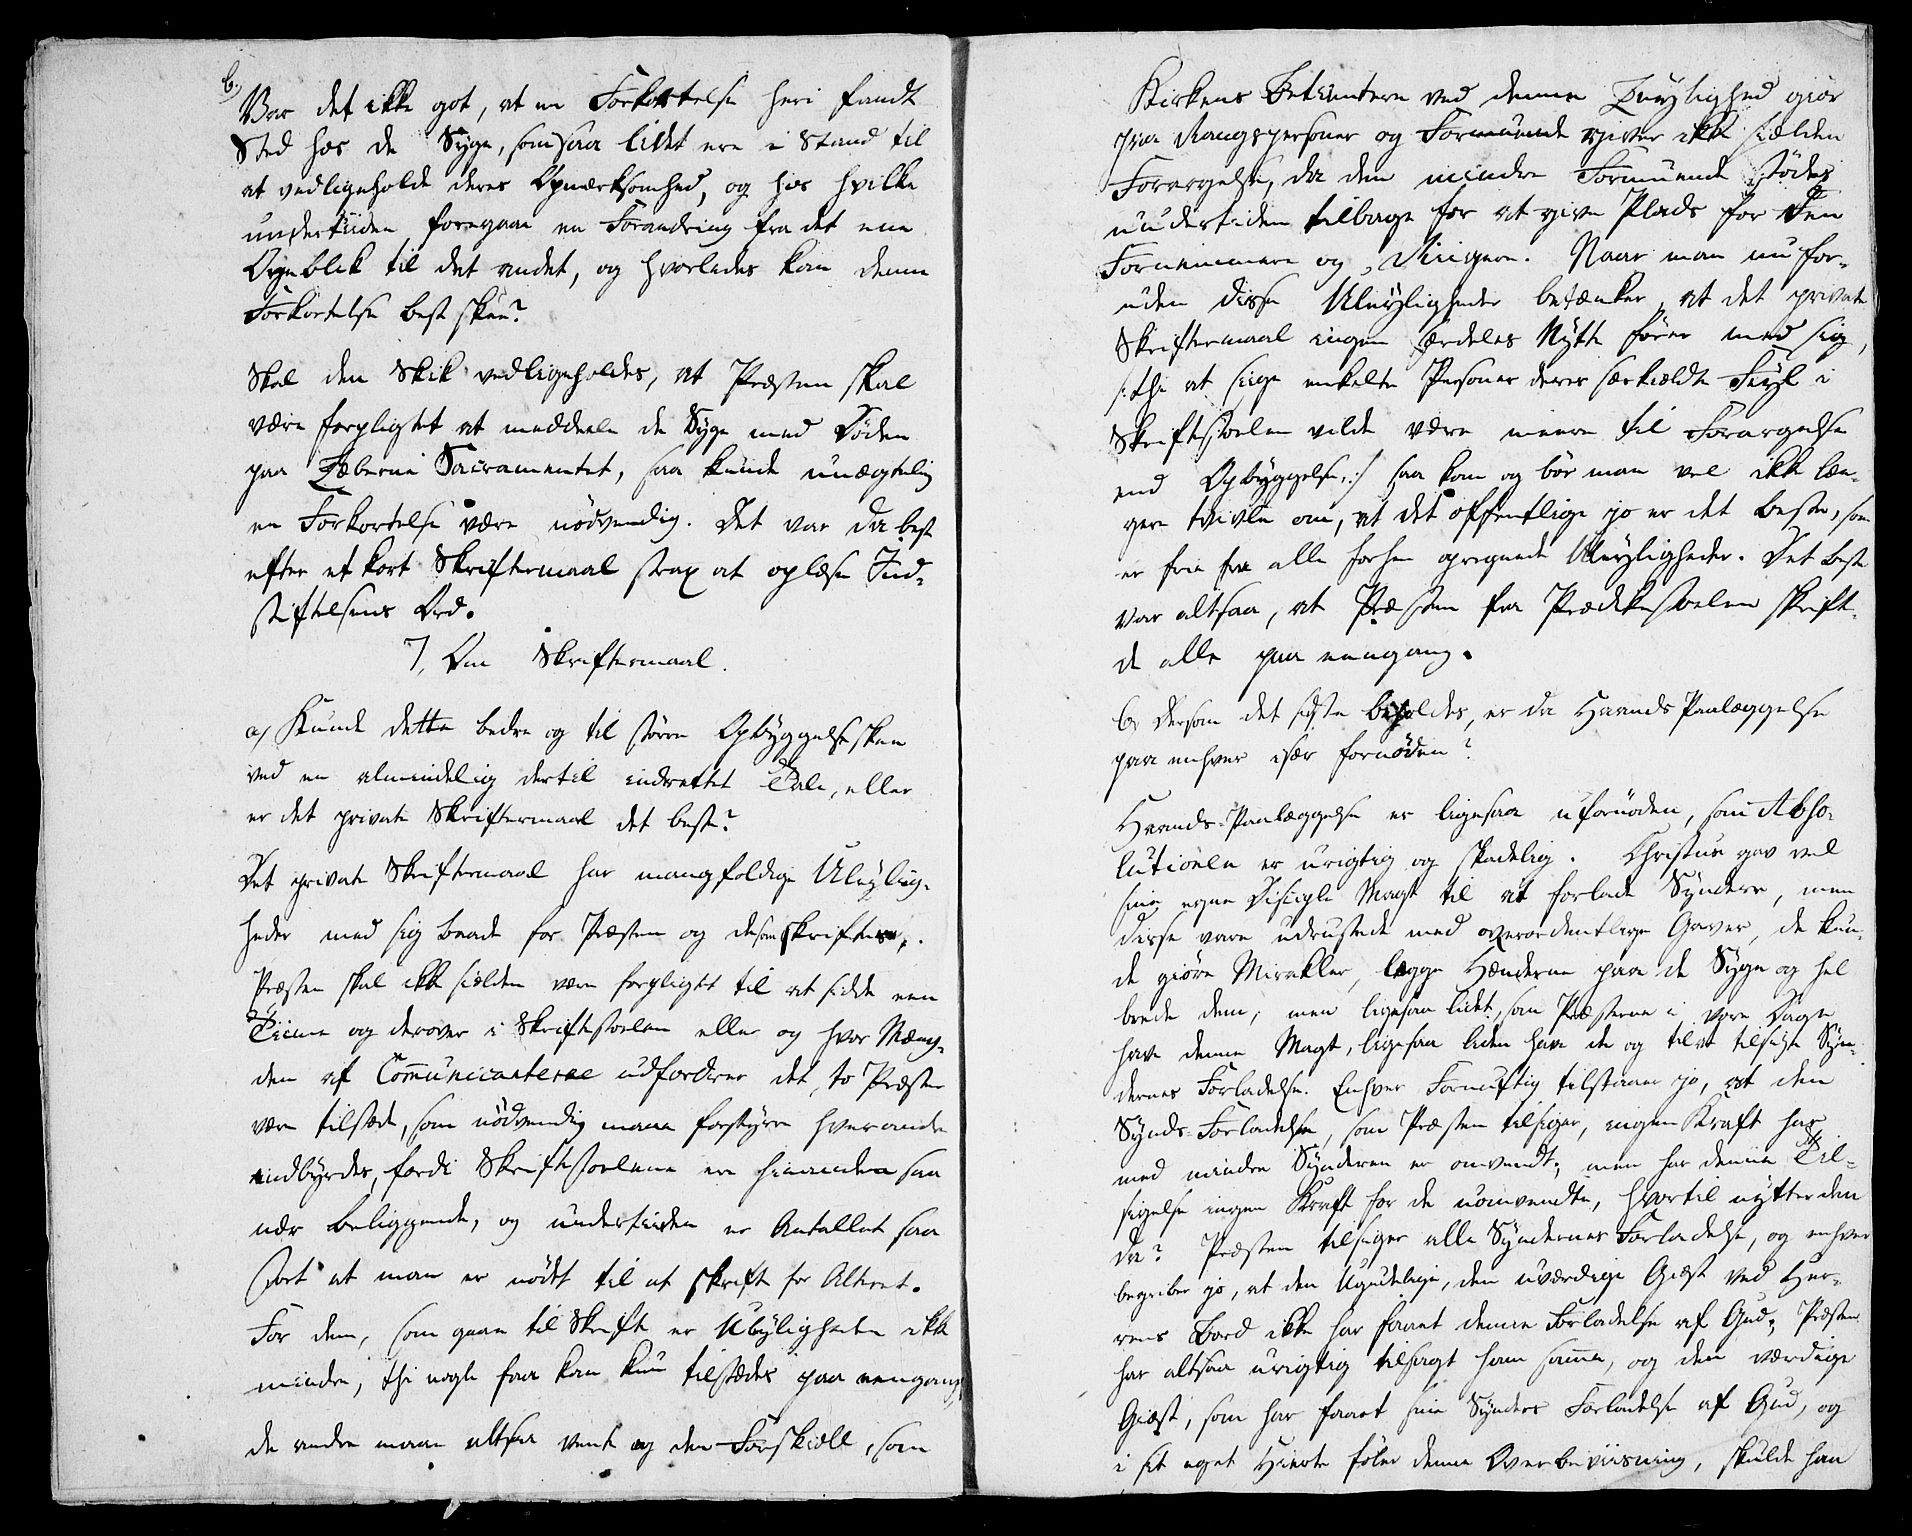 b,
Var det ikke got, at en Forkortelse heri fandt
Sted hos de Syge, som saa lidet ere i Stand til
at vedligeholde deres Opmærksomhed, og hos hvilke
undertiiden foregaar en Forandring fra det ene
Øyeblik til det andet, og hvorledes kan denne
Forkortelse best skee?
Skal den Skik vedligeholdes, at Præsten skal
være forpligtet at meddeele de Syge med Døden
paa Læberne Sacramentet, saa kunde unægtelig
en Forkortelse være nødvendig. Det var da best
efter et kort Skriftermaal strax at oplæse Ind-
stiftelsens Ord.
7, Om Skriftermaal.
a/ Kunde dette bedre og til større Opbyggelse skee
ved en almindelig dertil indrettet Tale, eller
er det private Skriftermaal det best?
Det private Skriftermaal har mangfoldige Uleylig-
heder med sig baade for Præsten og de som skriftes.
Præsten skal ikke sielden være forpligtet til at sidde een
Tiime og derover i Skriftestoelen eller og hvor Mæng-
den af Communicanterne udfordrer det, to Præster
være tilstæde, som nødvendig maae forstyrre hverandre
indbyrdes, fordi Skriftestoelene ere hinanden saa
nær beliggende, og undertiiden er Antallet saa
stort at man er nødt til at skrifte for Alteret.
For dem, som gaae til Skrifte er Ubeyligheden ikke
mindre, thi nogle faa kan kun tilstædes paa eengang,
de andre maae altsaa vente og den Forskiæll, som
Kirkens Betientere ved denne Leylighed giør
paa Rangspersoner og Formuende giver ikke sielden
Forargelse, da den mindre Formuende stødes
undertiden tilbage for at give Plads for den
Fornemmere og Riigere. Naar man nu for-
uden disse Uleyligheder betænker, at det private
Skriftermaal ingen særdeles Nytte fører med sig,
/: thi at siige enkelte Personer deres særskildte Feyl i
Skriftestoelen vilde være meere til Forargelse
end Opbyggelse :/ saa kan og bør man vel ikke læn-
gere tvivle om, at det offentlige jo er det beste, som
er frie fra alle forhen opregnede Uleyligheder. Det beste
var altsaa, at Præsten fra Prædikestoelen skrift-
de alle paa eengang.
b, Dersom det sidste beholdes, er da Haands Paalæggelse
paa enhver især fornøden?
Haands-Paalæggelse er ligesaa ufornøden, som Abso-
lutionen er urigtig og skadelig. Christus gav vel
sine egne Disciple Magt til at forlade Syndere, men
disse vare udrustede med overordentlige Gaver, de kun-
de giøre Mirakler, lægge Hænderne paa de Syge og hel-
brede dem, men ligesaa lidet, som Præsterne i vore Dage
have denne Magt, ligesaa liden have de og til at tilsige Syn-
dernes Forladelse. Enhver Fornuftig tilstaaer jo, at den
Synds-Forladelse, som Præsten tilsiger, ingen Kraft har
med mindre Synderen er omvendt, men har denne Til-
sigelse ingen Kraft for de uomvendte, hvortil nytter den
da? Præsten tilsiger alle Syndernes Forladelse, og enhver
begriber jo, at den Ugudelige, den uværdige Giæst ved Her-
rens Bord ikke har faaet denne Forladelse af Gud, Præsten
har altsaa urigtig tilsagt ham samme, og den værdige
Giæst, som har faaet sine Synders Forladelse af Gud, og
i sit eget Hierte føler denne Overbeviisning, skulde han